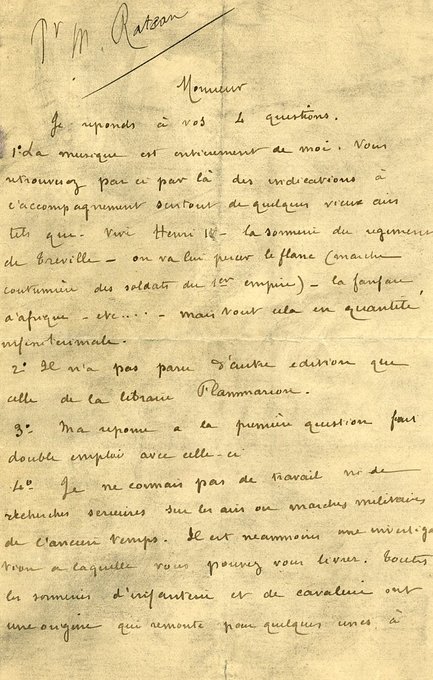 Pr M. Rateau
Monsieur
Je reponds à vos 4 questions.
1° La musique est entierement de moi. Vous
retrouverez par ci par là des indications à
l'accompagnement surtout de quelques vieux airs
tels que - Vive Henri IV - la sonnerie du regiment
de Treville - on va lui percer le flanc (marche
coutumière des soldats du 1er empire) - la fanfare
d'afrique - etc.... - mais tout cela en quantité
infinitesimale.
2° Il n'a pas paru d'autre edition que
celle de la librairie Flammarion.
3° Ma reponse a la première question fait
double emploi avec celle-ci
4° Je ne connais pas de travail ni de
recherches serieuses sur les airs ou marches militaires
de l'ancien temps. Il est neanmoins une investiga
tion a laquelle vous pouvez vous livrer. Toutes
les sonneries d'infanterie et de cavalerie ont
une origine qui remonte pour quelques unes à